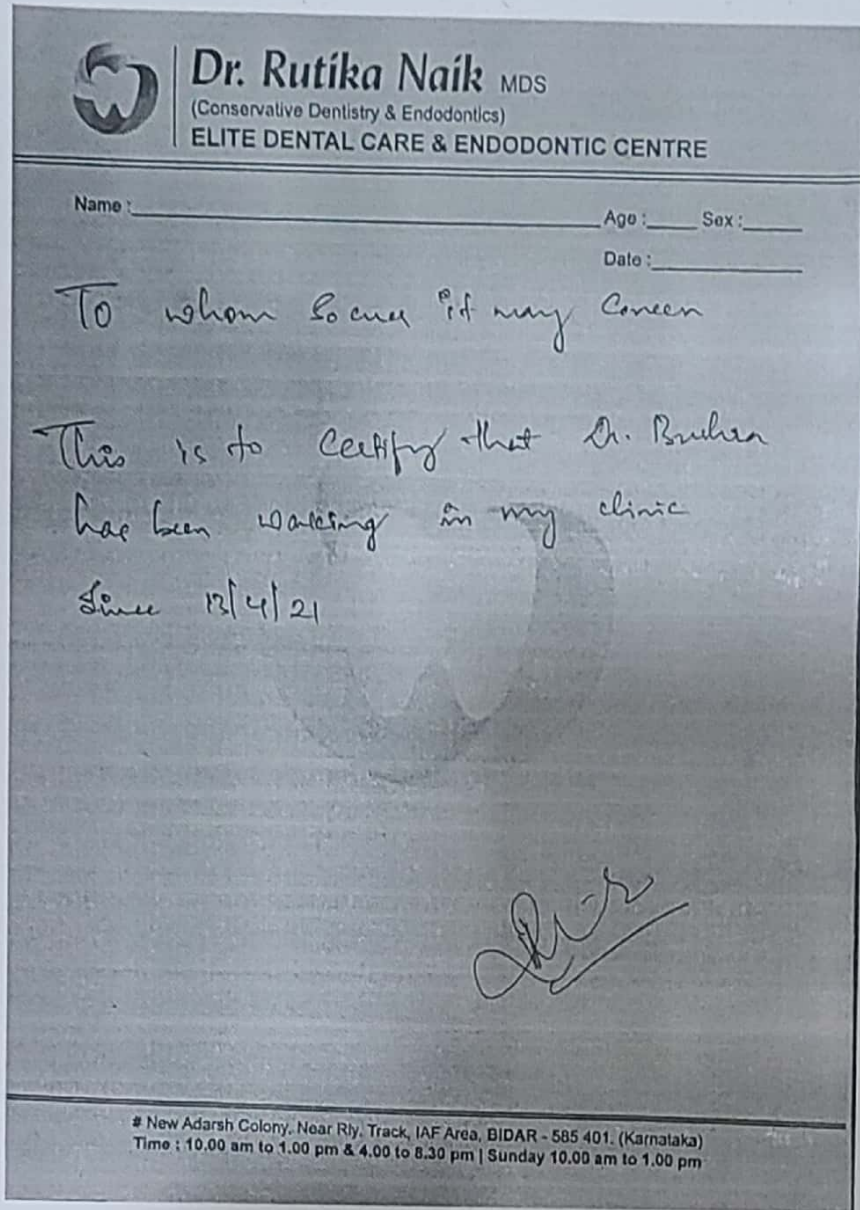 Dr. Rutika Naik MDS
(Conservative Dentistry & Endodontics)
ELITE DENTAL CARE & ENDODONTIC CENTRE
Name : Age : Sex :
Date :
To whom so ever it may Concern
This is to Certify that Dr.
has been working in my clinic
Since 13/4/21
# New Adarsh Colony, Near Rly. Track, IAF Area, BIDAR - 585 401. (Karnataka)
Time : 10.00 am to 1.00 pm & 4.00 to 8.30 pm | Sunday 10.00 am to 1.00 pm